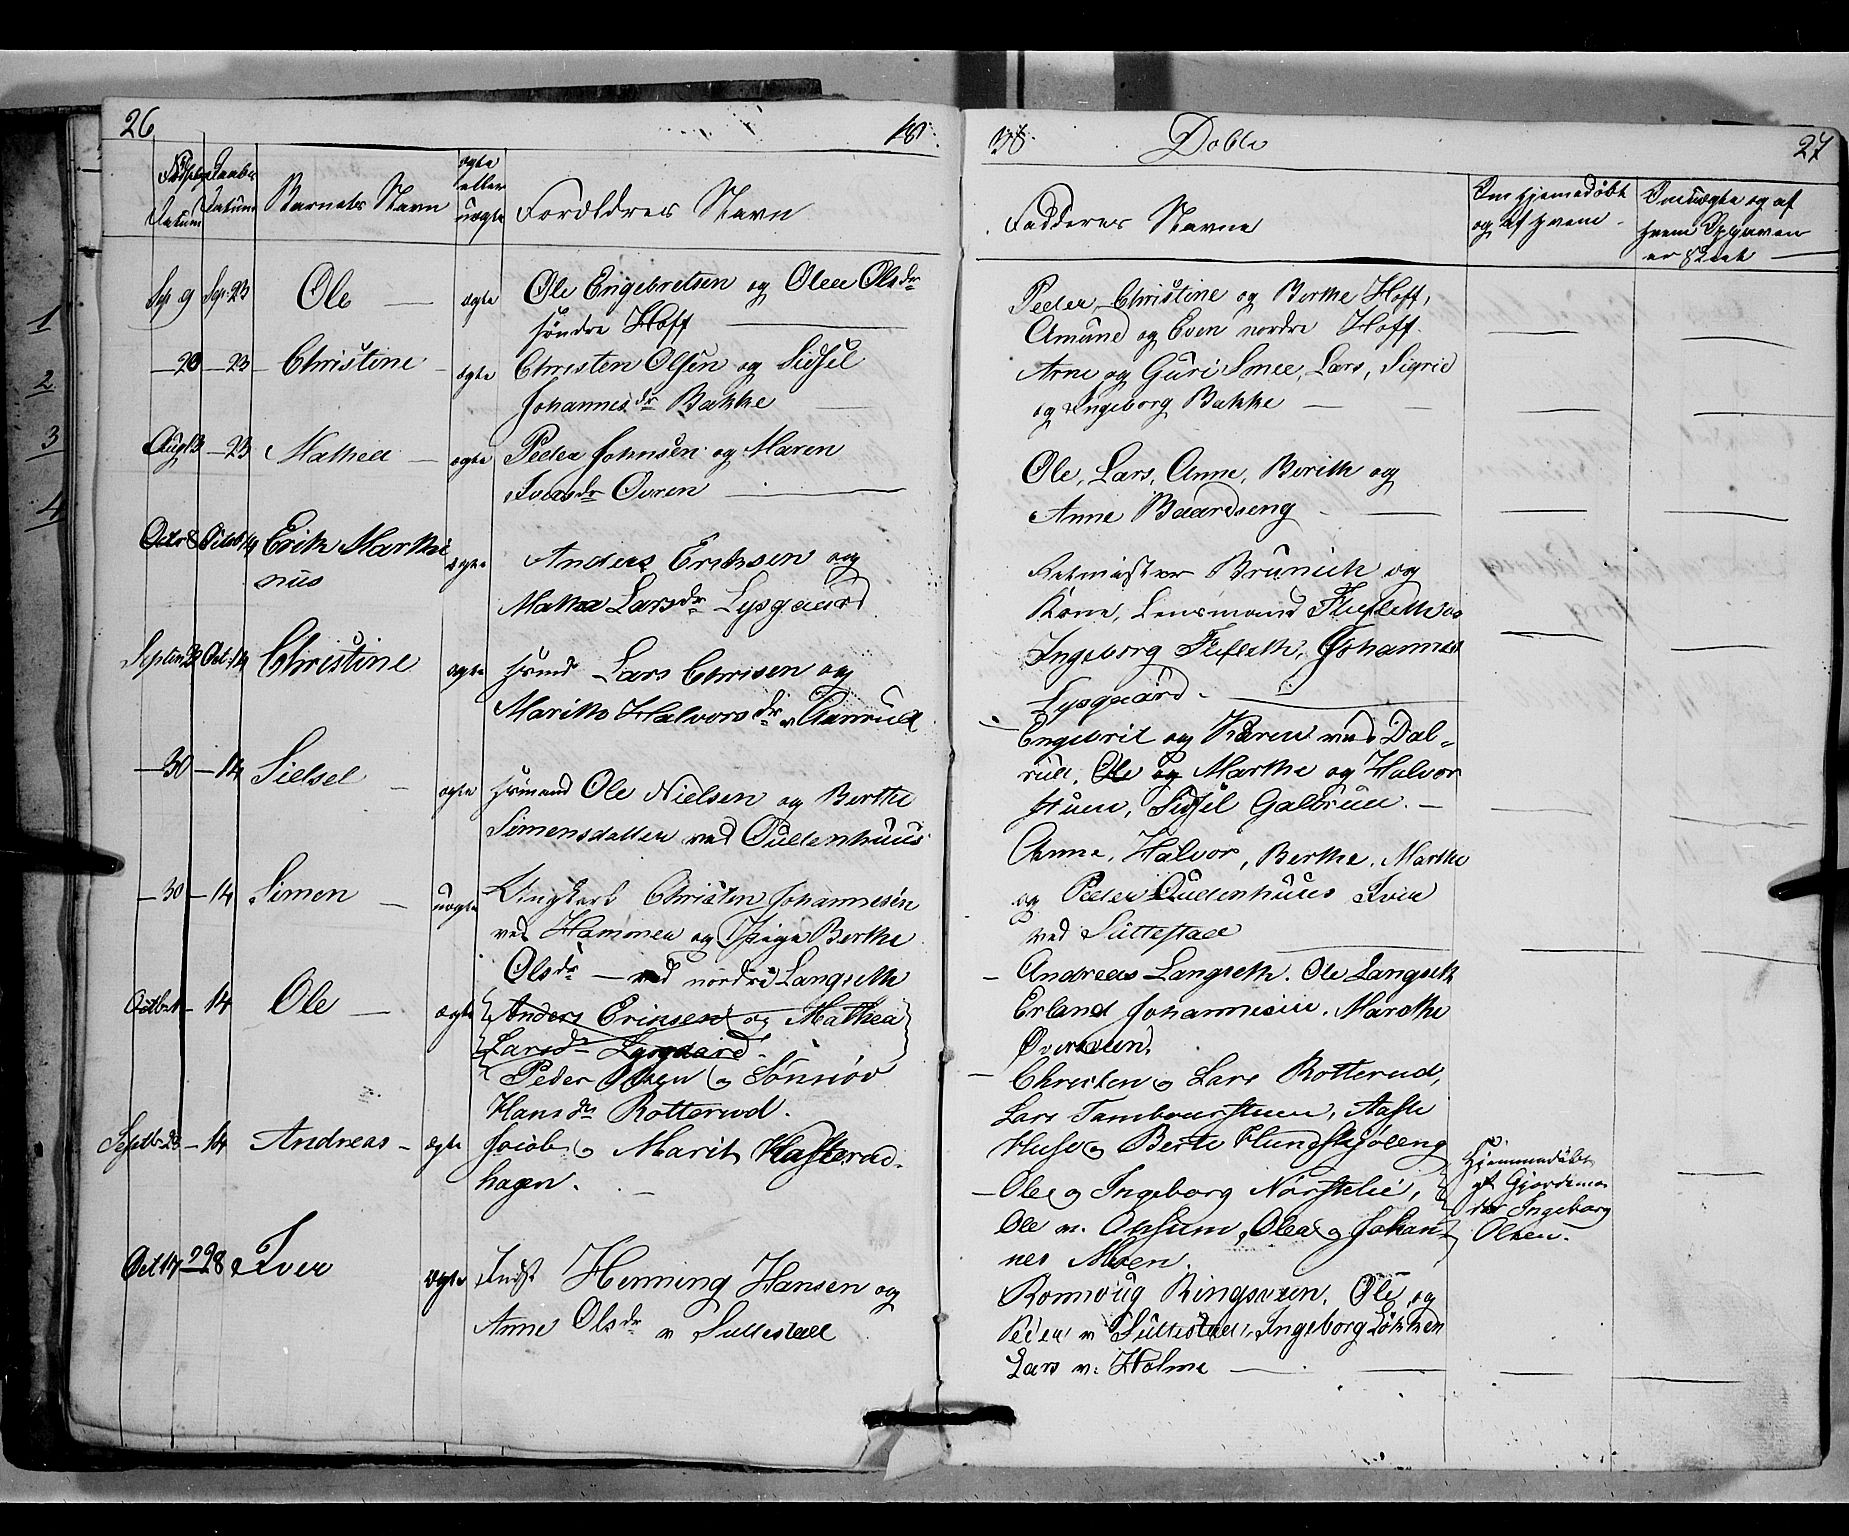 26
18
38
Döbte
27
Fødsels
Datum
Daabs
Datum
Barnets Navn
ægte
eller
uægte
Forældres Navn
Faddernes Navne
Om hjemedøbt
og af hvem
Om uægte og af
hvem Opgaven
er skeet
Sep 9 Sep. 23 Ole ægte Ole Engebretsen og Olea Olsdr
söndre Hoff
Peder, Christine og Berthe Hoff,
Amund og Even nordre Hoff.
1
— 20 — 23 Christine ægte Christen Olsen og Sidsel
Johannesdr Bakke
Arne og Guri Smee, Lars, Sigrid
og Ingeborg Bakke
2
Aug 13 — 23 Mathea ægte Peder Johnsen og Maren
Iversdr Øvren
Ole, Lars, Anne, Berith og
Anne Baardseng
3
4
Octr 8 Octob 14 Erik Marthi
nus ægte Anders Eriksen og
Mathea Larsdr Lysgaard
Brunich og
Kone, Lensmand
Ingeborg Johannes
Lysgaard
Octb. 14 Christine ægte Huusmd Lars Chrisen og
Marithe Halvorsdr v. Aanrud
Engebrit og Karen ved Dal-
rud, Ole og Marthe og Halvor
Stuen, Sidsel Galbruen.
— 30 — 14 Sidsel ægte Huusmand Ole Nielsen og Berthe
Simensdatter ved Oudenhuus
Anne, Halvor, Berthe, Marthe
og Peder Oudenhuus Iver
ved Suttestad
— 30 — 14 Simen uægte Ungkarl Christen Johannesen
ved Hammer og Pige Berthe
Olsdr — ved nordre Langseth
Andreas Langseth. Ole Langseth
Erland Johannesen. Marthe
Överveen.
Octbr 1 — 14 Ole ægte Anders Eriksen og Mathea
Larsdr Lysgaard.
Peder Olsen og Sönnöv
Hansdr Rotterud.
Christen og Lars Rotterud,
Lars Tambourstuen, Aaste
Huse og Berte Hundskjöleng
Septbr 28 — 14 Andreas — ægte Jacob og Marit Hasterud-
hagen.
— Ole og Ingeborg Nörstelie,
Ole v. Opsum, Olea og Johan-
nes Moen.
Hjemmedøbt
af Gjordemo-
der Ingeborg
Olsen.
Oct 17 — 28 Iver ægte Indst Henning Hansen og
Anne Olsdr v Suttestad
Ronnoug Ringsveen, Ole og
Peder v Suttestad, Ingeborg Lökken
Lars v. Holme